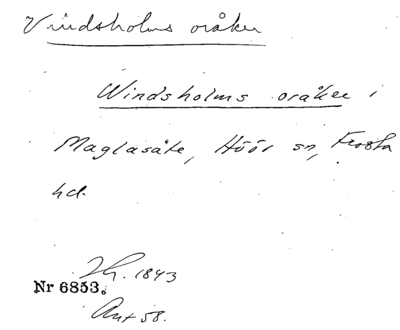 Vindsholms oråker
Windsholms oråker i
Maglasäte, Höör sn, Frosta
hd.
Th. 1843
Nr 6853.
Ant 58.